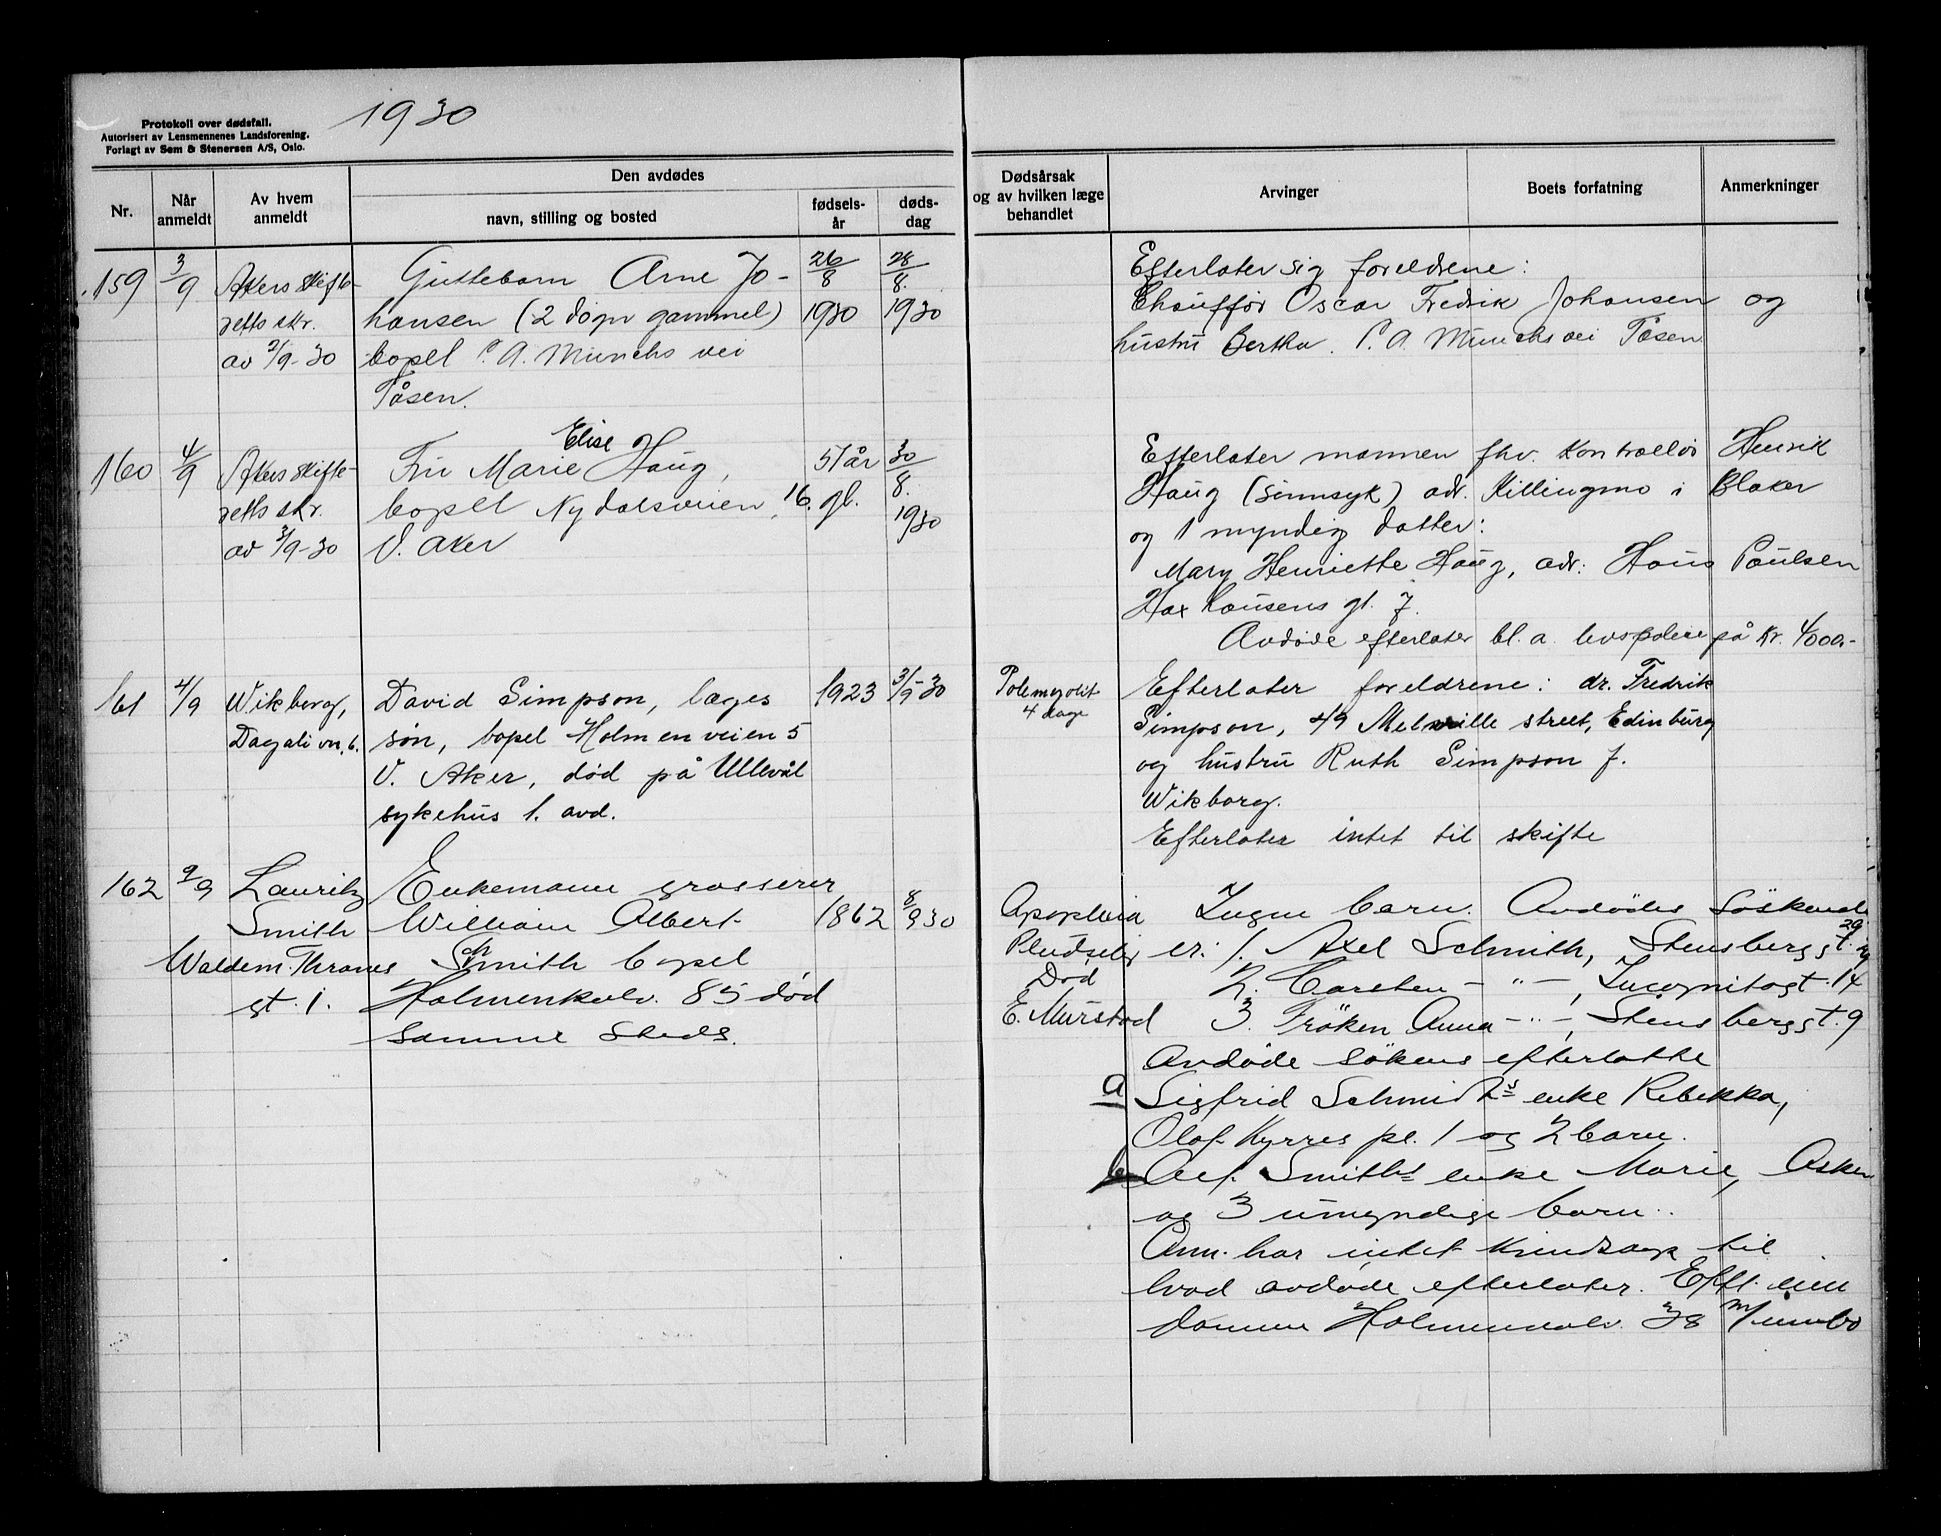 Protokoll over dødsfall.
Autorisert av Lensmennenes Landsforening.
Forlagt av Sem & Stenersen A/S, Oslo.
1930
Nr.
Når anmeldt
Av hvem anmeldt
Den avdødes
navn, stilling og bosted
fødselsår
dødsdag
Dødsårsak og av hvilken læge behandlet
Arvinger
Boets forfatning
Anmerkninger
159
3/9
Akers skifte-
retts skr.
av 2/9-30
Guttebarn Arne Jo-
hansen (2 døgn gammel)
bopel P. A. Munchs vei
Tåsen.
26/8
1930
28/8.
1930
Efterlater sig foreldrene:
Chauffør Oscar Fredrik Johansen og
hustru Bertha. P. A. Munchs vei Tåsen
160
4/9
Akers skifte-
retts skr.
av 3/9-30
Elise
Fru Marie Haug,
bopel Nydalsveien 16.
V. Aker
57 år
gl.
30/8.
1930
Efterlater mannen fhv. kontrollør Henrik
Haug (sinnsyk) adr. Killingmo i Blaker
og 1 myndig datter:
Mary Henriette Haug, adr: Hans Paulsen
Haxthausens gt. 7.
Avdøde efterlater bl. a. livspolise på kr. 4000.-
161
4/9
Wikborg,
Dagalivn. 6.
David Simpson, læges
søn, bopel Holmenveien 5
V. Aker, død på Ullevål
sykehus 1. avd.
1923
3/9-30
Polemyolit
4 dage
Efterlater foreldrene: dr. Fredrik
Simpson, 49 Melville street, Edinburg
og hustru Ruth Simpson f.
Wikborg.
Efterlater intet til skifte
162
9/9
Lauritz
Smith
Waldem. Thranes
gt. 1.
Enkemann grosserer
William Albert
Smith bopel
Holmenkolv. 85 død
samme steds.
1862
8/9 30
Apoplexia
Pludselig
Død
E. Murstad
Ingen barn. Avdødes Søskende
er: 1. Axel Schmith, Stensberggt. 29
2. Carsten -"-, Incognitogt. 14
3. Frøken Anna -"-, Stensberggt. 9
Avdøde søkens efterlatte
a Sigfrid Schmidts enke Rebekka,
Olaf Kyrres pl. 1 og 2 barn.
b Alf. Smiths enke Marie, Asker
og 3 umyndige barn.
Anm. har intet kjendskap til
hvad avdøde efterlater.
Holmenkolv. 38 m/innbo